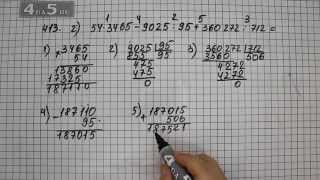 4 до 5
413. 2) 54·3465 - 9025 : 95 + 360272 : 712 =
1 4 2 5 3
1) 3465
54
13860
17325
187110
2) 9025 | 95
855 95
475
475
0
3) 360272 | 712
3560 506
4272
4272
0
4) 187110
- 95
187015
5) 187015
+ 506
187521